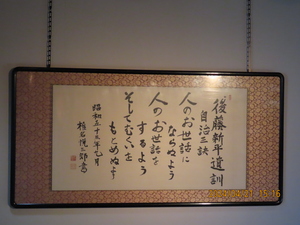 後藤新平遺訓
自治三訣
人のお世話に
ならぬよう
人のお世話を
するよう
そしてむくいを
もとめぬよう